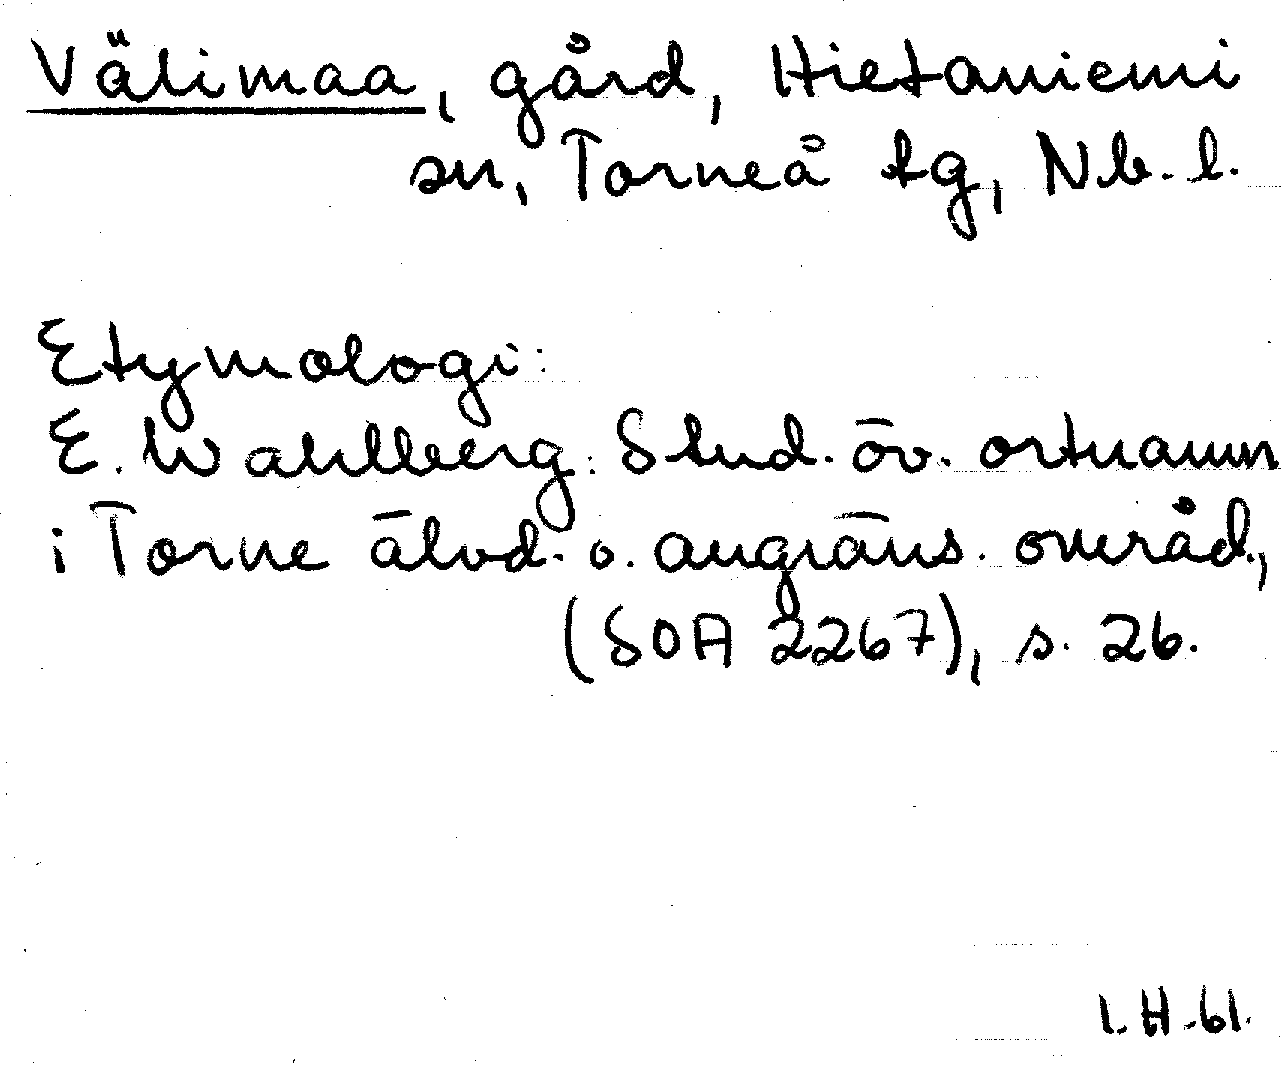 Välimaa, gård, Hietaniemi
sn, Torneå tg, Nb. l.
Etymologi:
E. Wahlberg: Stud. öv. ortnamn
i Torne älvd. o. angräns. områd.,
(SOA 2267), s. 26.
I.H.61.